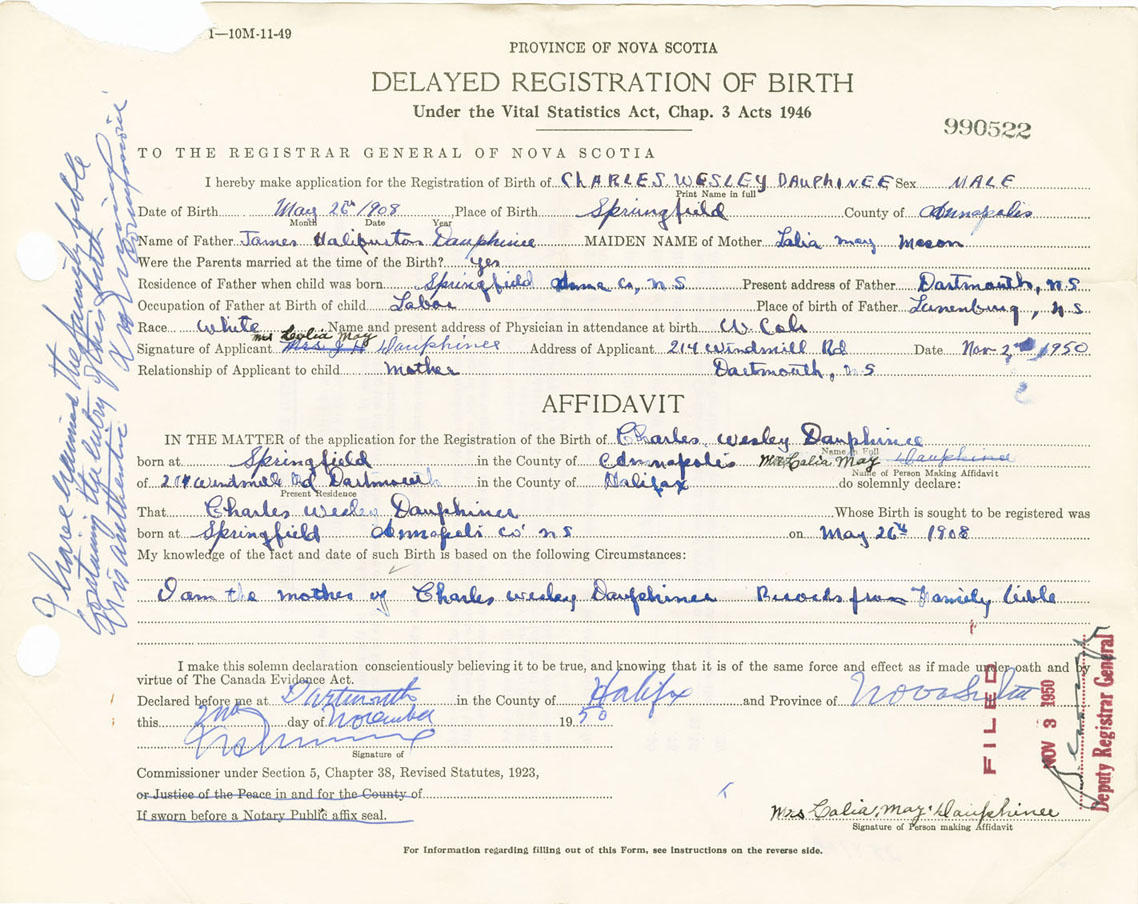 1—10M-11-49
PROVINCE OF NOVA SCOTIA
DELAYED REGISTRATION OF BIRTH
Under the Vital Statistics Act, Chap. 3 Acts 1946
990522
TO THE REGISTRAR GENERAL OF NOVA SCOTIA
I hereby make application for the Registration of Birth of CHARLES WESLEY DAUPHINEE Sex MALE
Print Name in full
Date of Birth May 26th 1908 Place of Birth Springfield County of Annapolis
Month Date Year
Name of Father James Haliburton Dauphinee MAIDEN NAME of Mother Lalia may Mason
Were the Parents married at the time of the Birth? Yes
Residence of Father when child was born Springfield Anna Co, N.S Present address of Father Dartmouth, N.S
Occupation of Father at Birth of child Labor Place of birth of Father Lunenburg, N.S
Race White Name and present address of Physician in attendance at birth W. Cole
Signature of Applicant Mrs Lalia May Dauphinee Address of Applicant 214 Windmill Rd Date Nov 2nd 1950
Relationship of Applicant to child mother Dartmouth, N.S
AFFIDAVIT
IN THE MATTER of the application for the Registration of the Birth of Charles Wesley Dauphinee
Name in Full
born at Springfield in the County of Annapolis Mrs Lalia May Dauphinee
Name of Person Making Affidavit
of 214 Windmill Rd Dartmouth in the County of Halifax do solemnly declare:
Present Residence
That Charles Wesley Dauphinee Whose Birth is sought to be registered was
born at Springfield Annapolis Co N S on May 26th 1908
My knowledge of the fact and date of such Birth is based on the following Circumstances:
I am the mother of Charles Wesley Dauphinee Records from Family Bible
I make this solemn declaration conscientiously believing it to be true, and knowing that it is of the same force and effect as if made under oath and by
virtue of The Canada Evidence Act.
Declared before me at Dartmouth in the County of Halifax and Province of Nova Scotia
this 2nd day of November 1950
Signature of
Commissioner under Section 5, Chapter 38, Revised Statutes, 1923,
or Justice of the Peace in and for the County of
If sworn before a Notary Public affix seal.
Mrs Lalia May Dauphinee
Signature of Person making Affidavit
For Information regarding filling out of this Form, see instructions on the reverse side.
I have examined the family bible
containing the entry of this birth
It is authentic
FILED
NOV 3 1950
Deputy Registrar General